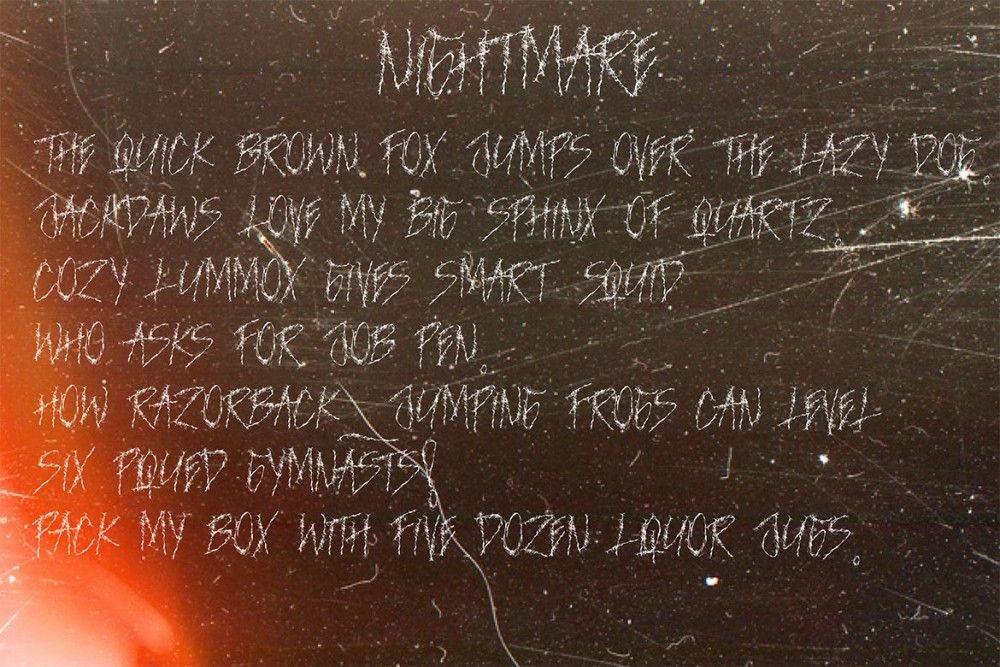 NIGHTMARE
THE QUICK BROWN FOX JUMPS OVER THE LAZY DOG.
JACKDAWS LOVE MY BIG SPHINX OF QUARTZ.
COZY LUMMOX GIVES SMART SQUID
WHO ASKS FOR JOB PEN.
HOW RAZORBACK-JUMPING FROGS CAN LEVEL
SIX PIQUED GYMNASTS!
PACK MY BOX WITH FIVE DOZEN LIQUOR JUGS.